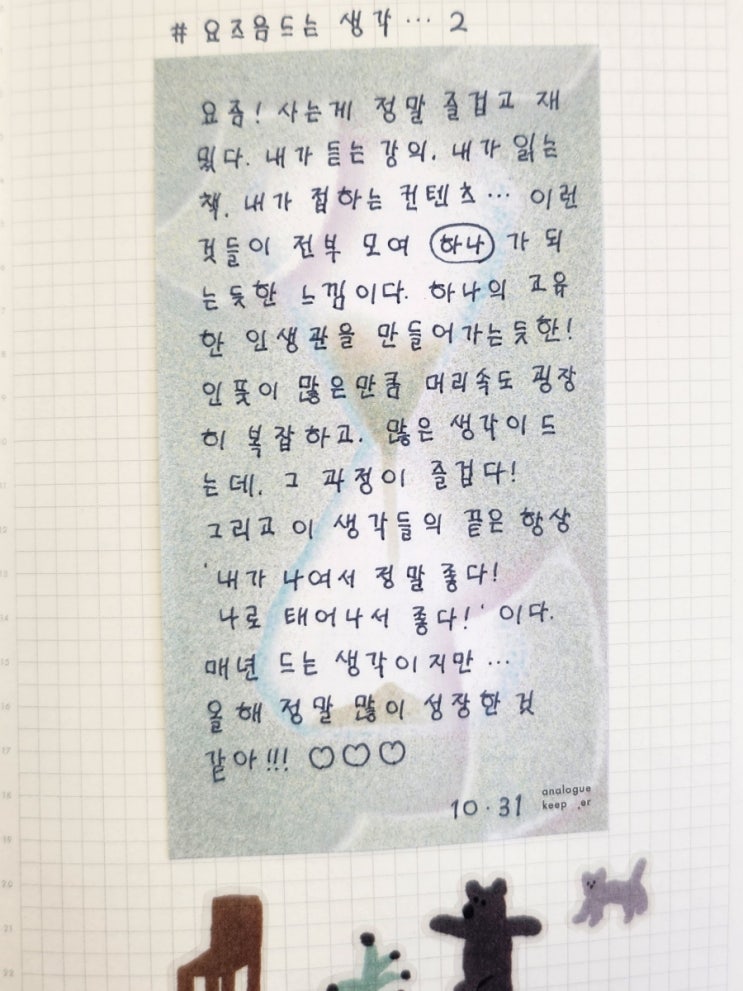 # 요즈음드는 생각… 2
요즘! 사는게 정말 즐겁고 재
밌다. 내가 듣는 강의, 내가 읽는
책, 내가 접하는 컨텐츠… 이런
것들이 전부 모여 하나 가 되
는듯한 느낌이다. 하나의 고유
한 인생관을 만들어가는듯한!
인풋이 많은만큼 머리속도 굉장
히 복잡하고, 많은 생각이 드
는데, 그 과정이 즐겁다!
그리고 이 생각들의 끝은 항상
'내가 나여서 정말 좋다!
나로 태어나서 좋다!' 이다.
매년 드는 생각이지만…
올해 정말 많이 성장한 것
같아!!! ♡♡♡
10.31
analogue
keep_er